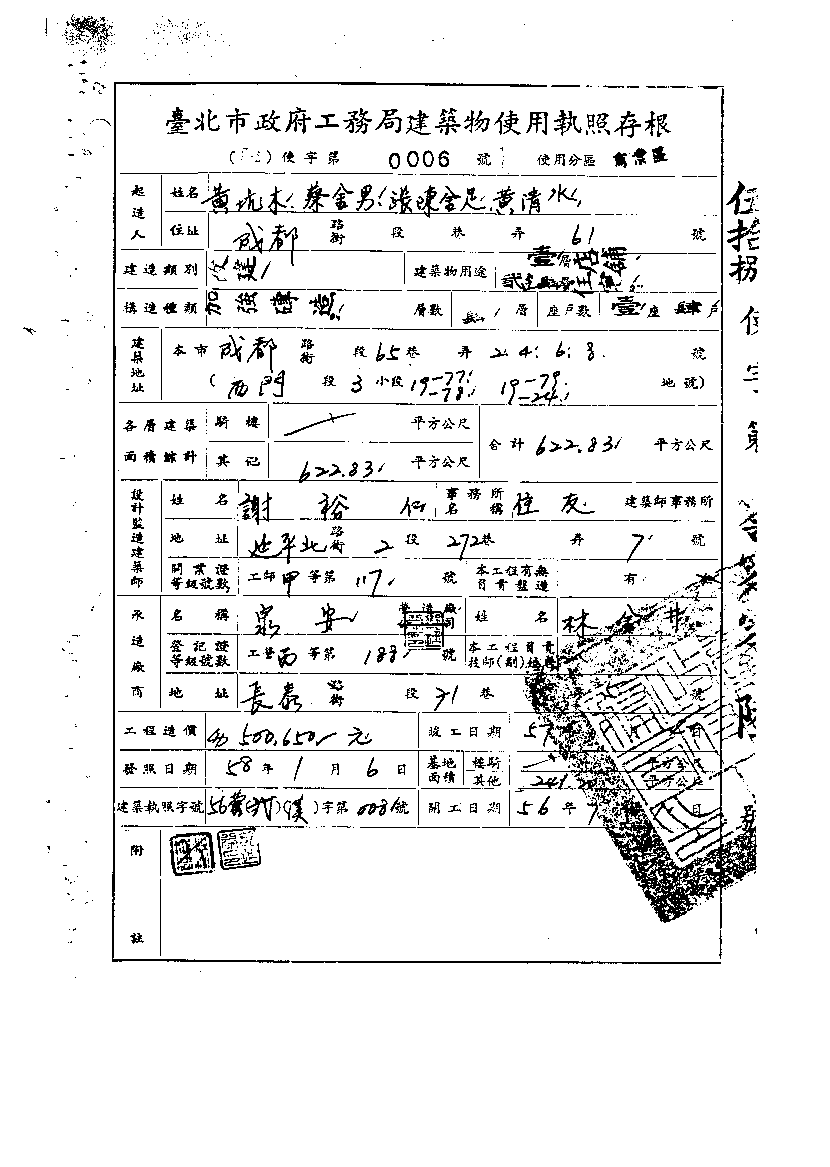 臺北市政府工務局建築物使用執照存根
使字第 0006 號 使用分區 商業區
起造人 姓名 黃坑木 蔡金男 張陳全足 黃清水
住址 成都 路街 段 巷 弄 61 號
建造類別 改建 建築物用途 壹層店鋪
構造種類 加強磚造 層數 層 座戶數 壹座 肆戶
建築地址 本市 成都 路街 段 65 巷 弄 2.4.6.8. 號
(西門 段 3 小段 19-77 19-78 19-79 19-24 地號)
各層建築面積總計 騎樓 平方公尺 合計 622.83 平方公尺
其他 622.83 平方公尺
設計監造建築師 姓名 謝裕仁 事務所名稱 住友 建築師事務所
地址 延平北 路街 2 段 272 巷 弄 7 號
開業證等級號數 工師甲等第 117 號 本工程有無負責監造 有
承造廠商 名稱 泉安 營造廠 姓名 林金井
登記證等級號數 工營丙等第 188 號 本工程負責技師(副)
地址 長泰 路街 段 71 巷 號
工程造價 500,650 元 竣工日期 57 日
發照日期 58 年 1 月 6 日 基地面積 騎樓 平方公尺
其他 241 平方公尺
建築執照字號 56 字第 0081 號 開工日期 56 年 7 日
附註
伍拾捌使字第 號